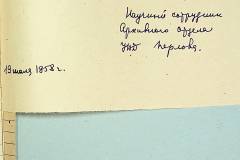 Научный сотрудник
Архивного отдела
УВД Перлова.
19 июля 1958 г.